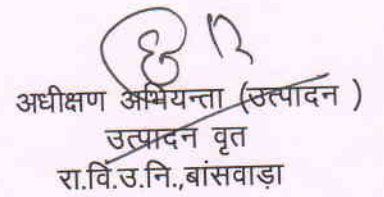 अधीक्षण अभियन्ता (उत्पादन )
उत्पादन वृत
रा.वि.उ.नि.,बांसवाड़ा